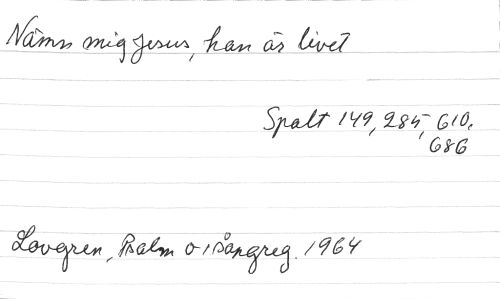 Nämn mig Jesus, han är livet
Spalt 149, 285, 610,
686
Lövgren, Psalm o. sångreg. 1964